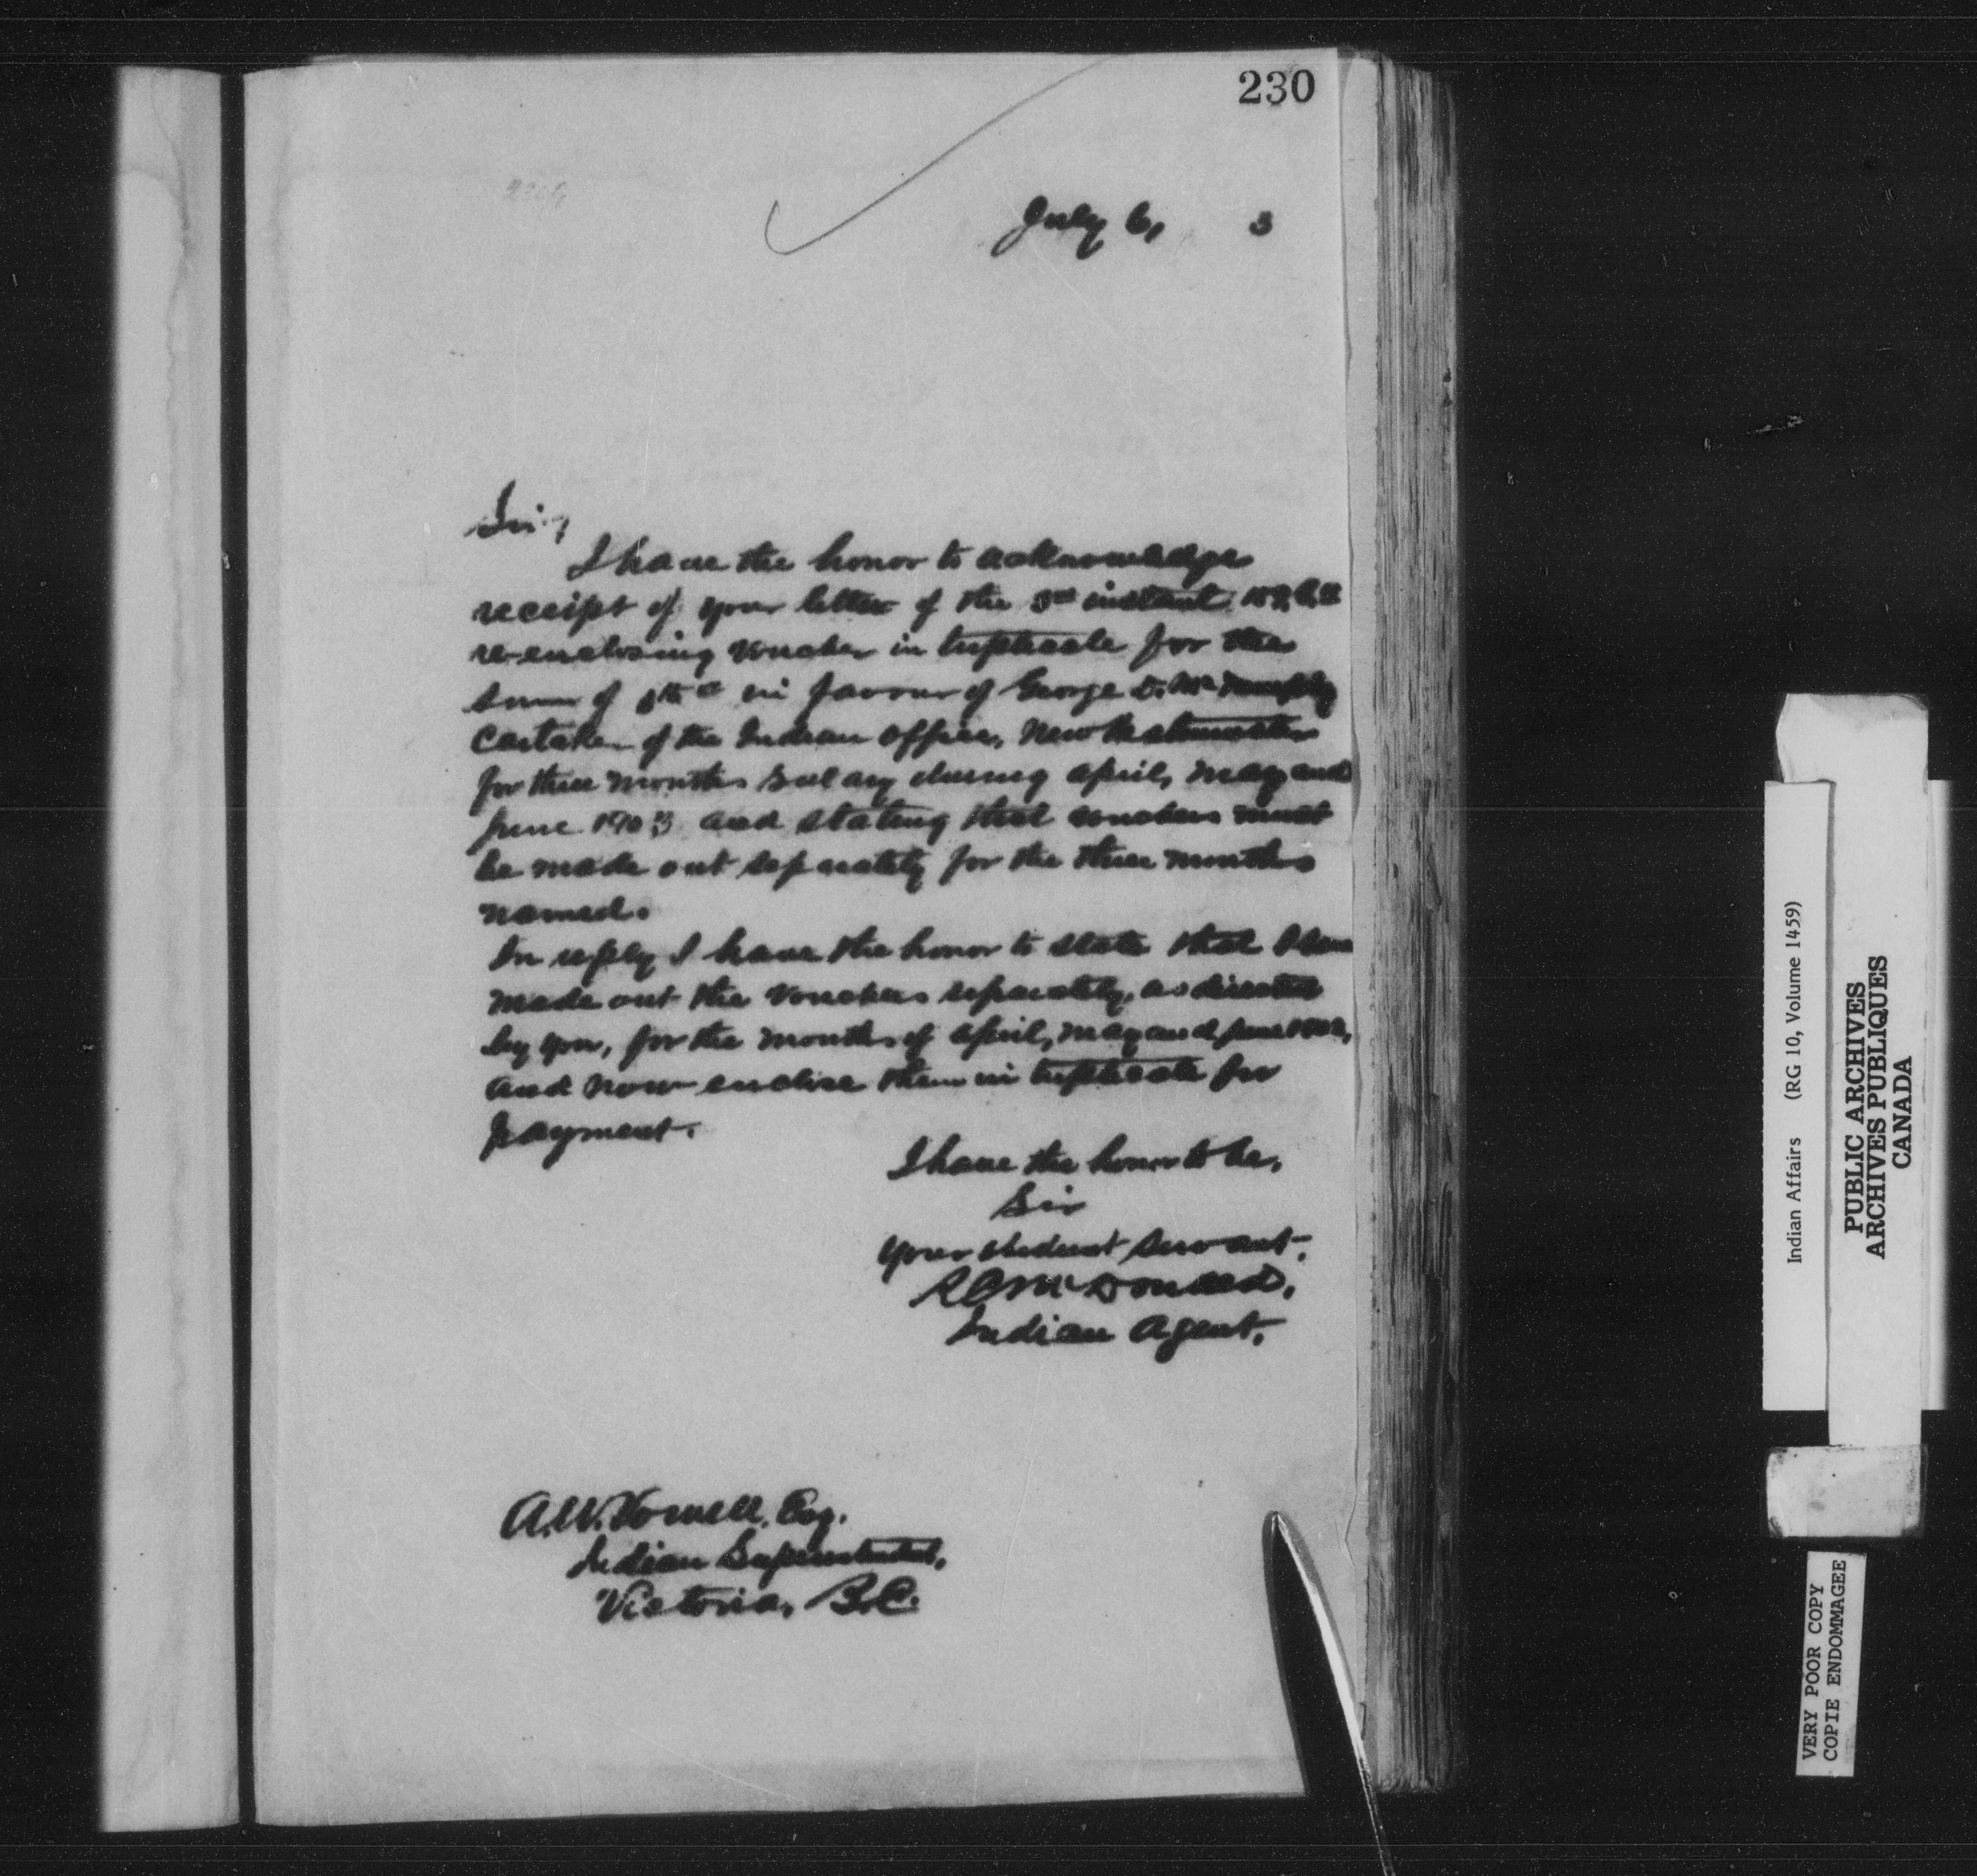 230
July 6, 3
Sir,
I have the honor to acknowledge
receipt of your letter of the 3rd instant
re-enclosing voucher in triplicate for the
sum of in favour of George D.
Caretaker of the Indian Office, New Westminster
for three months salary during April, May and
June 1903 and stating that vouchers must
be made out separately for the three months
named.
In reply I have the honor to state that I have
made out the vouchers separately, as directed
by you, for the months of April, May and June
and now enclose them in triplicate for
payment.
I have the honor to be,
Sir
Your obedient servant,
McDonald,
Indian Agent.
A.W. Vowell, Esq.
Indian Superintendent,
Victoria, B.C.
Indian Affairs (RG 10, Volume 1459)
PUBLIC ARCHIVES
ARCHIVES PUBLIQUES
CANADA
VERY POOR COPY
COPIE ENDOMMAGEE